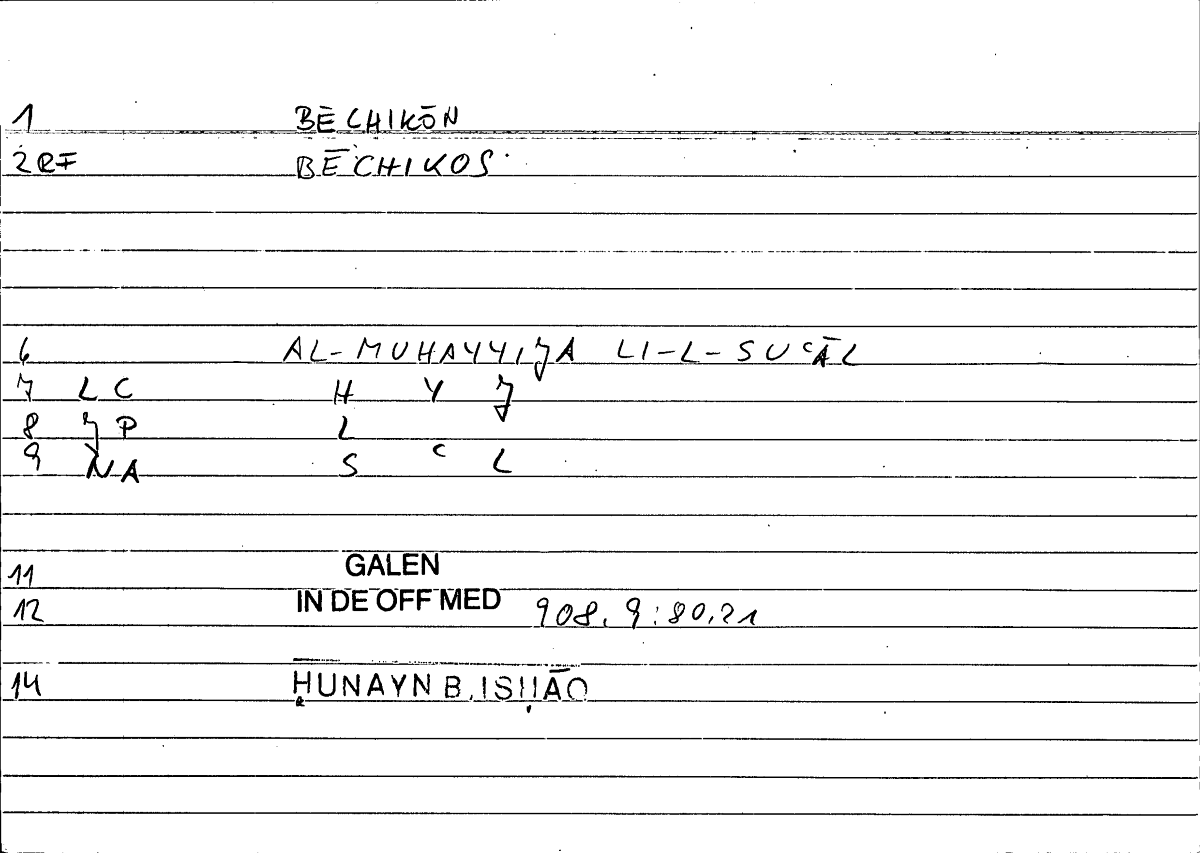 1 BĒCHIKŌN
2RF BĒCHIKOS
6 AL-MUHAYYIJA LI-L-SUʿĀL
7 LC H Y J
8 JP L
9 NA S ʿ L
11 GALEN
12 IN DE OFF MED 908.9:80.21
14 ḤUNAYN B. ISḤĀQ